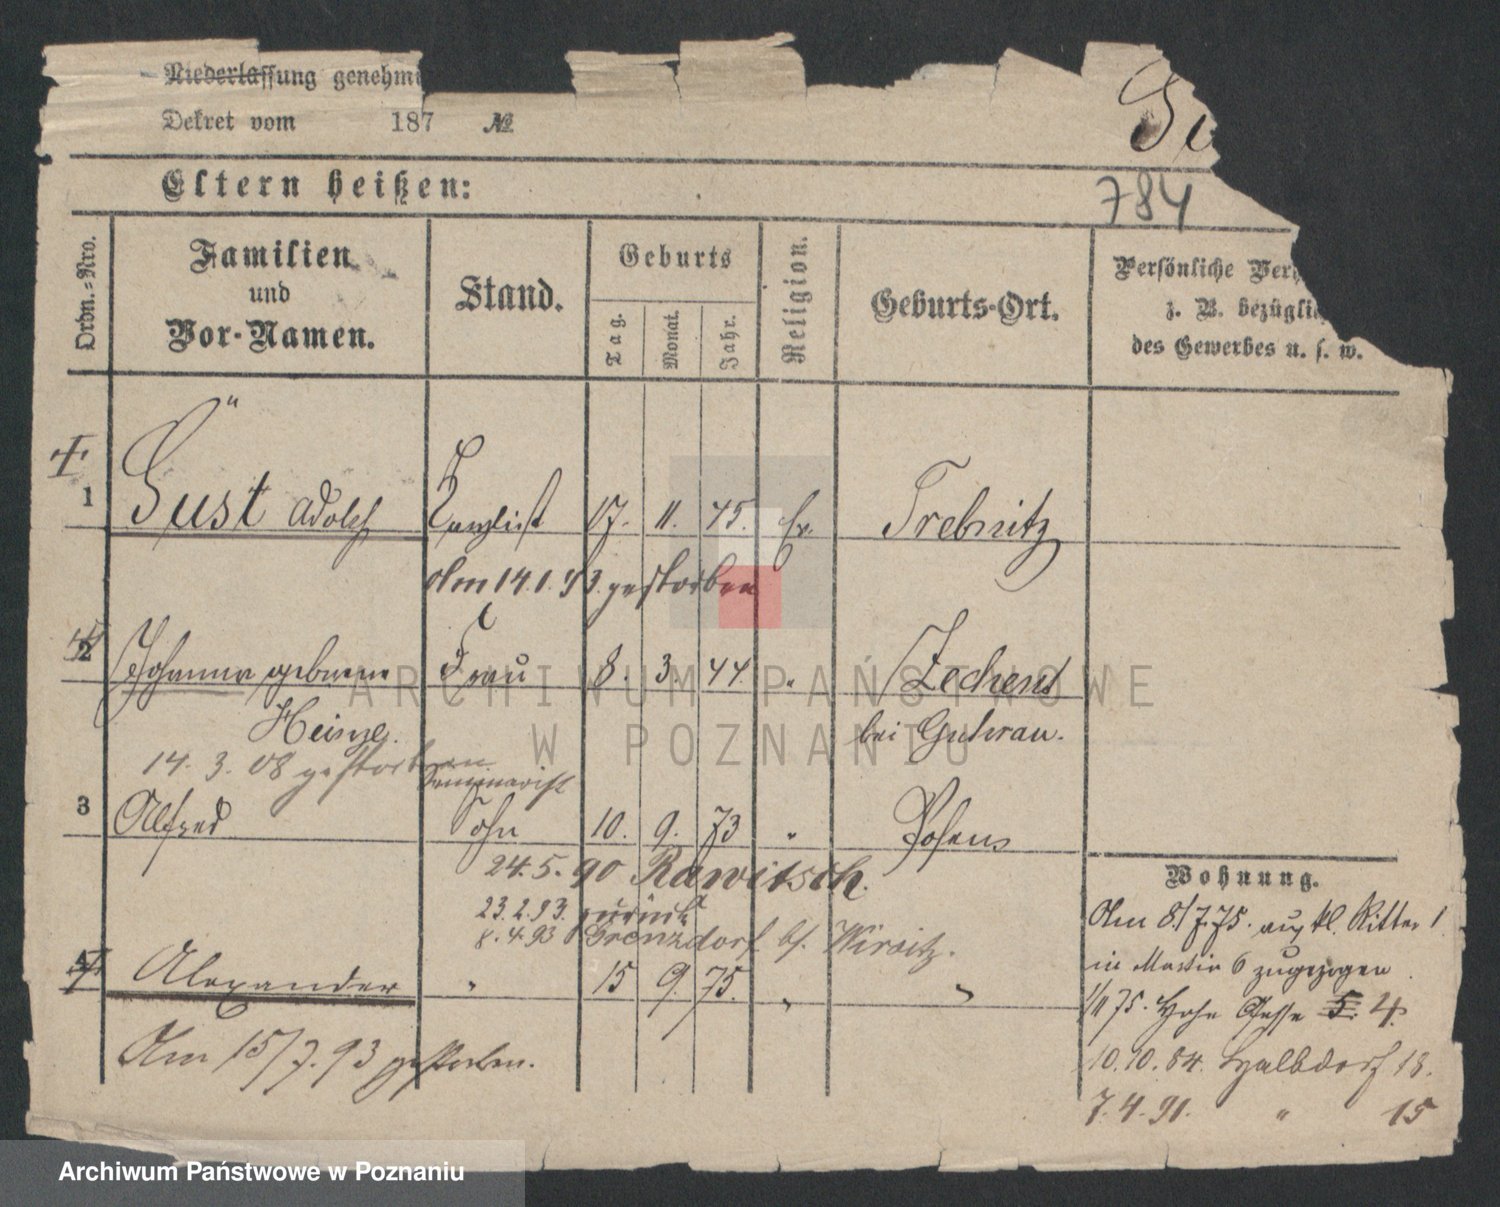 Niederlassung genehmi
Dekret vom 187 №
784
Eltern heißen:
Ordn.-Nro.
Familien und Vor-Namen.
Stand.
Geburts
Tag. Monat. Jahr.
Religion.
Geburts-Ort.
Persönliche Verh
z. B. bezüglic
des Gewerbes u. s. w.
1 Güst Adolf Kanzlist 17. 11. 45. Ev. Trebnitz
Am 14.1.93. gestorben
2 Johanna geborene Frau 8. 3. 44 " Zechen
Heinze. bei Guhrau.
14. 3. 08 gestorben Seminarist
3 Alfred Sohn 10. 9. 73 " Posen
24.5.90 Rawitsch.
23.2.93. zurück
8.4.93 Grenzdorf bs. Wirsitz.
4 Alexander " 15 9. 75. " "
Am 15/7.93 gestorben.
Wohnung.
Am 8/7.75. aus kl. Ritter 1
in Martin 6 zugezogen.
1/11 75. Hohe Gasse 5. 4.
10.10.84. Halbdorf 18.
7.4.91. " 15
ARCHIWUM PAŃSTWOWE
W POZNANIU
Archiwum Państwowe w Poznaniu